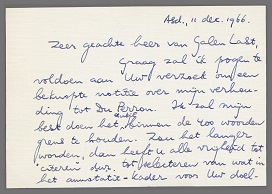 Asd., 11 dec. 1966.
Zeer geachte heer van Galen Last,
graag zal ik pogen te
voldoen aan Uw verzoek om een
beknopte notitie over mijn verhou-
ding tot Du Perron. Ik zal mijn
best doen het binnen de 400 woorden
grens te houden. Zou het langer
worden, dan heeft U alle vrijheid tot
citeren, tot selecteren van wat in
het annotatie-kader voor Uw doel-